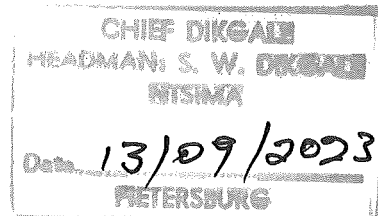 CHIEF DIKGALE
HEADMAN: S. W. DIKGALE
NTSIMA
Date 13/09/2023
PIETERSBURG